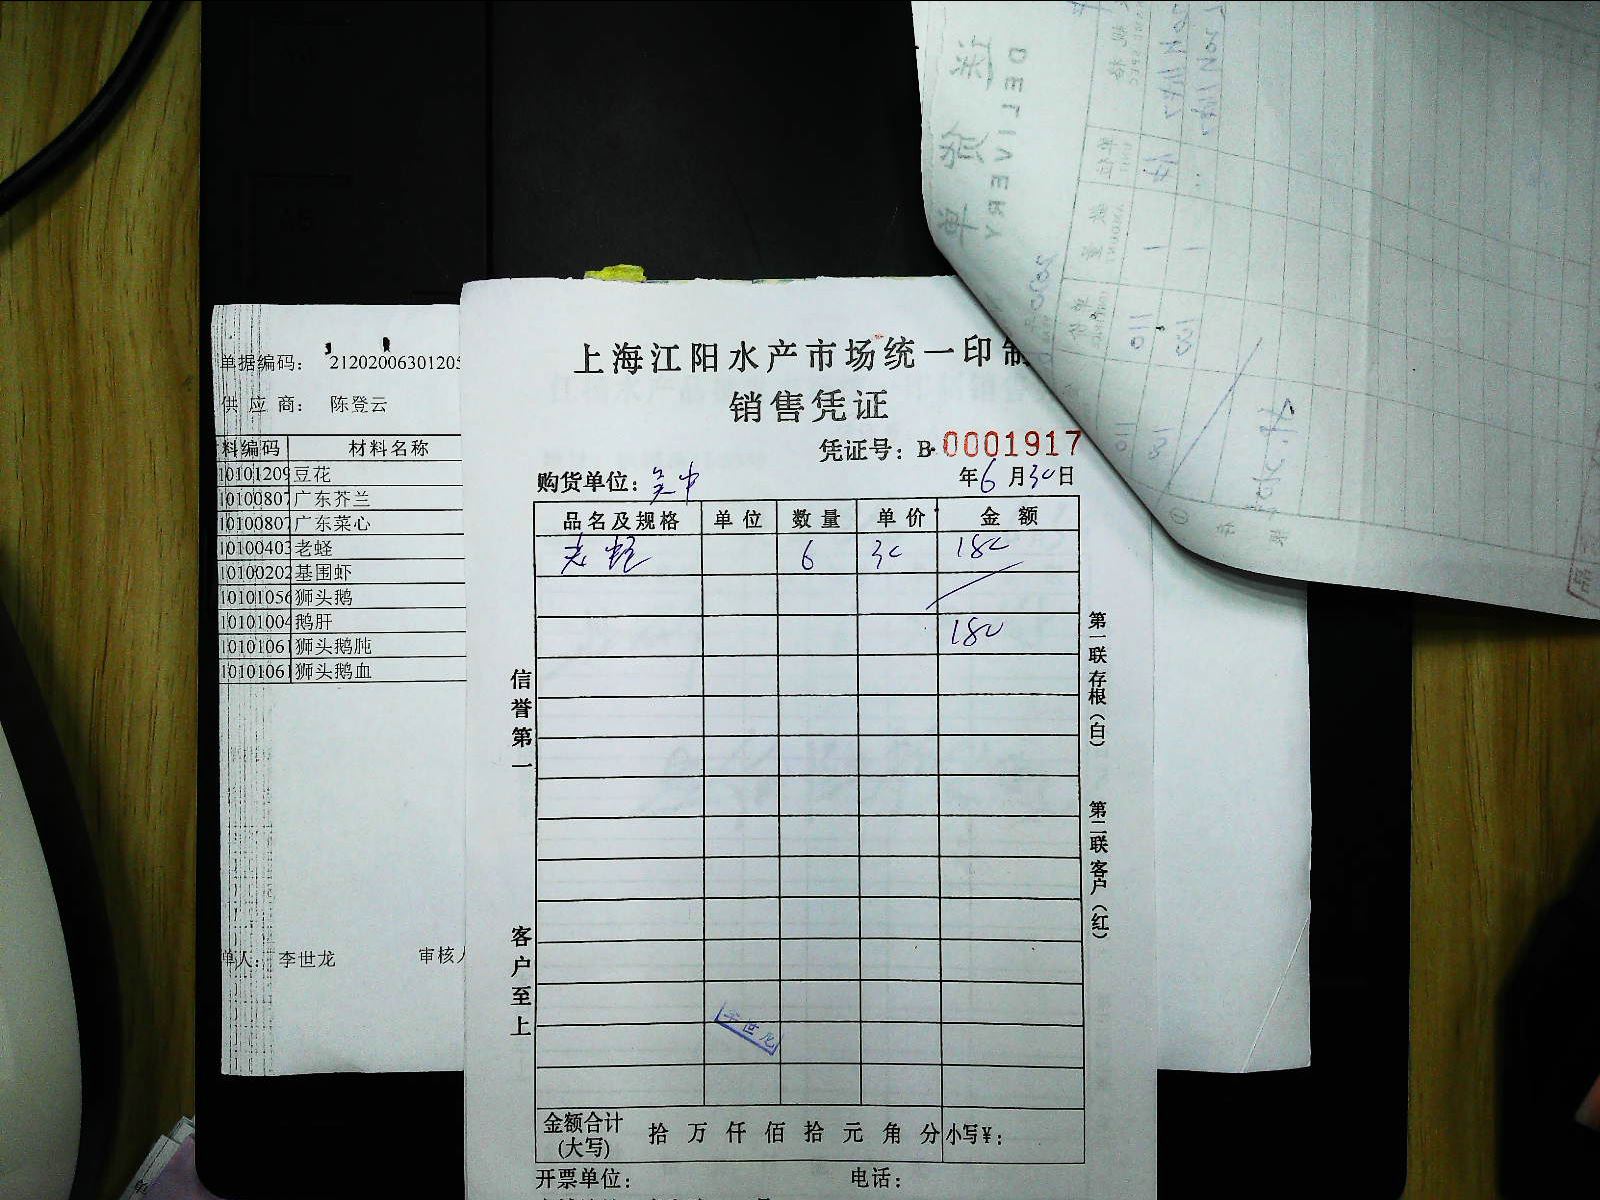 上海江阳水产市场统一印制
销售凭证
凭证号：B·0001917
购货单位：吴中 年6月30日
品名及规格 单位 数量 单价 金额
老蛏 6 30 180
180
信誉第一
客户至上
第一联存根（白）
第二联客户（红）
金额合计(大写) 拾 万 仟 佰 拾 元 角 分 小写￥：
开票单位： 电话：
李世龙
单据编码： 2120200630120
供应商： 陈登云
料编码 材料名称
10101209 豆花
1010080 广东芥兰
1010080 广东菜心
10100403 老蛏
10100202 基围虾
10101056 狮头鹅
10101004 鹅肝
1010106 狮头鹅肫
1010106 狮头鹅血
单人： 李世龙 审核人
DELIVERY